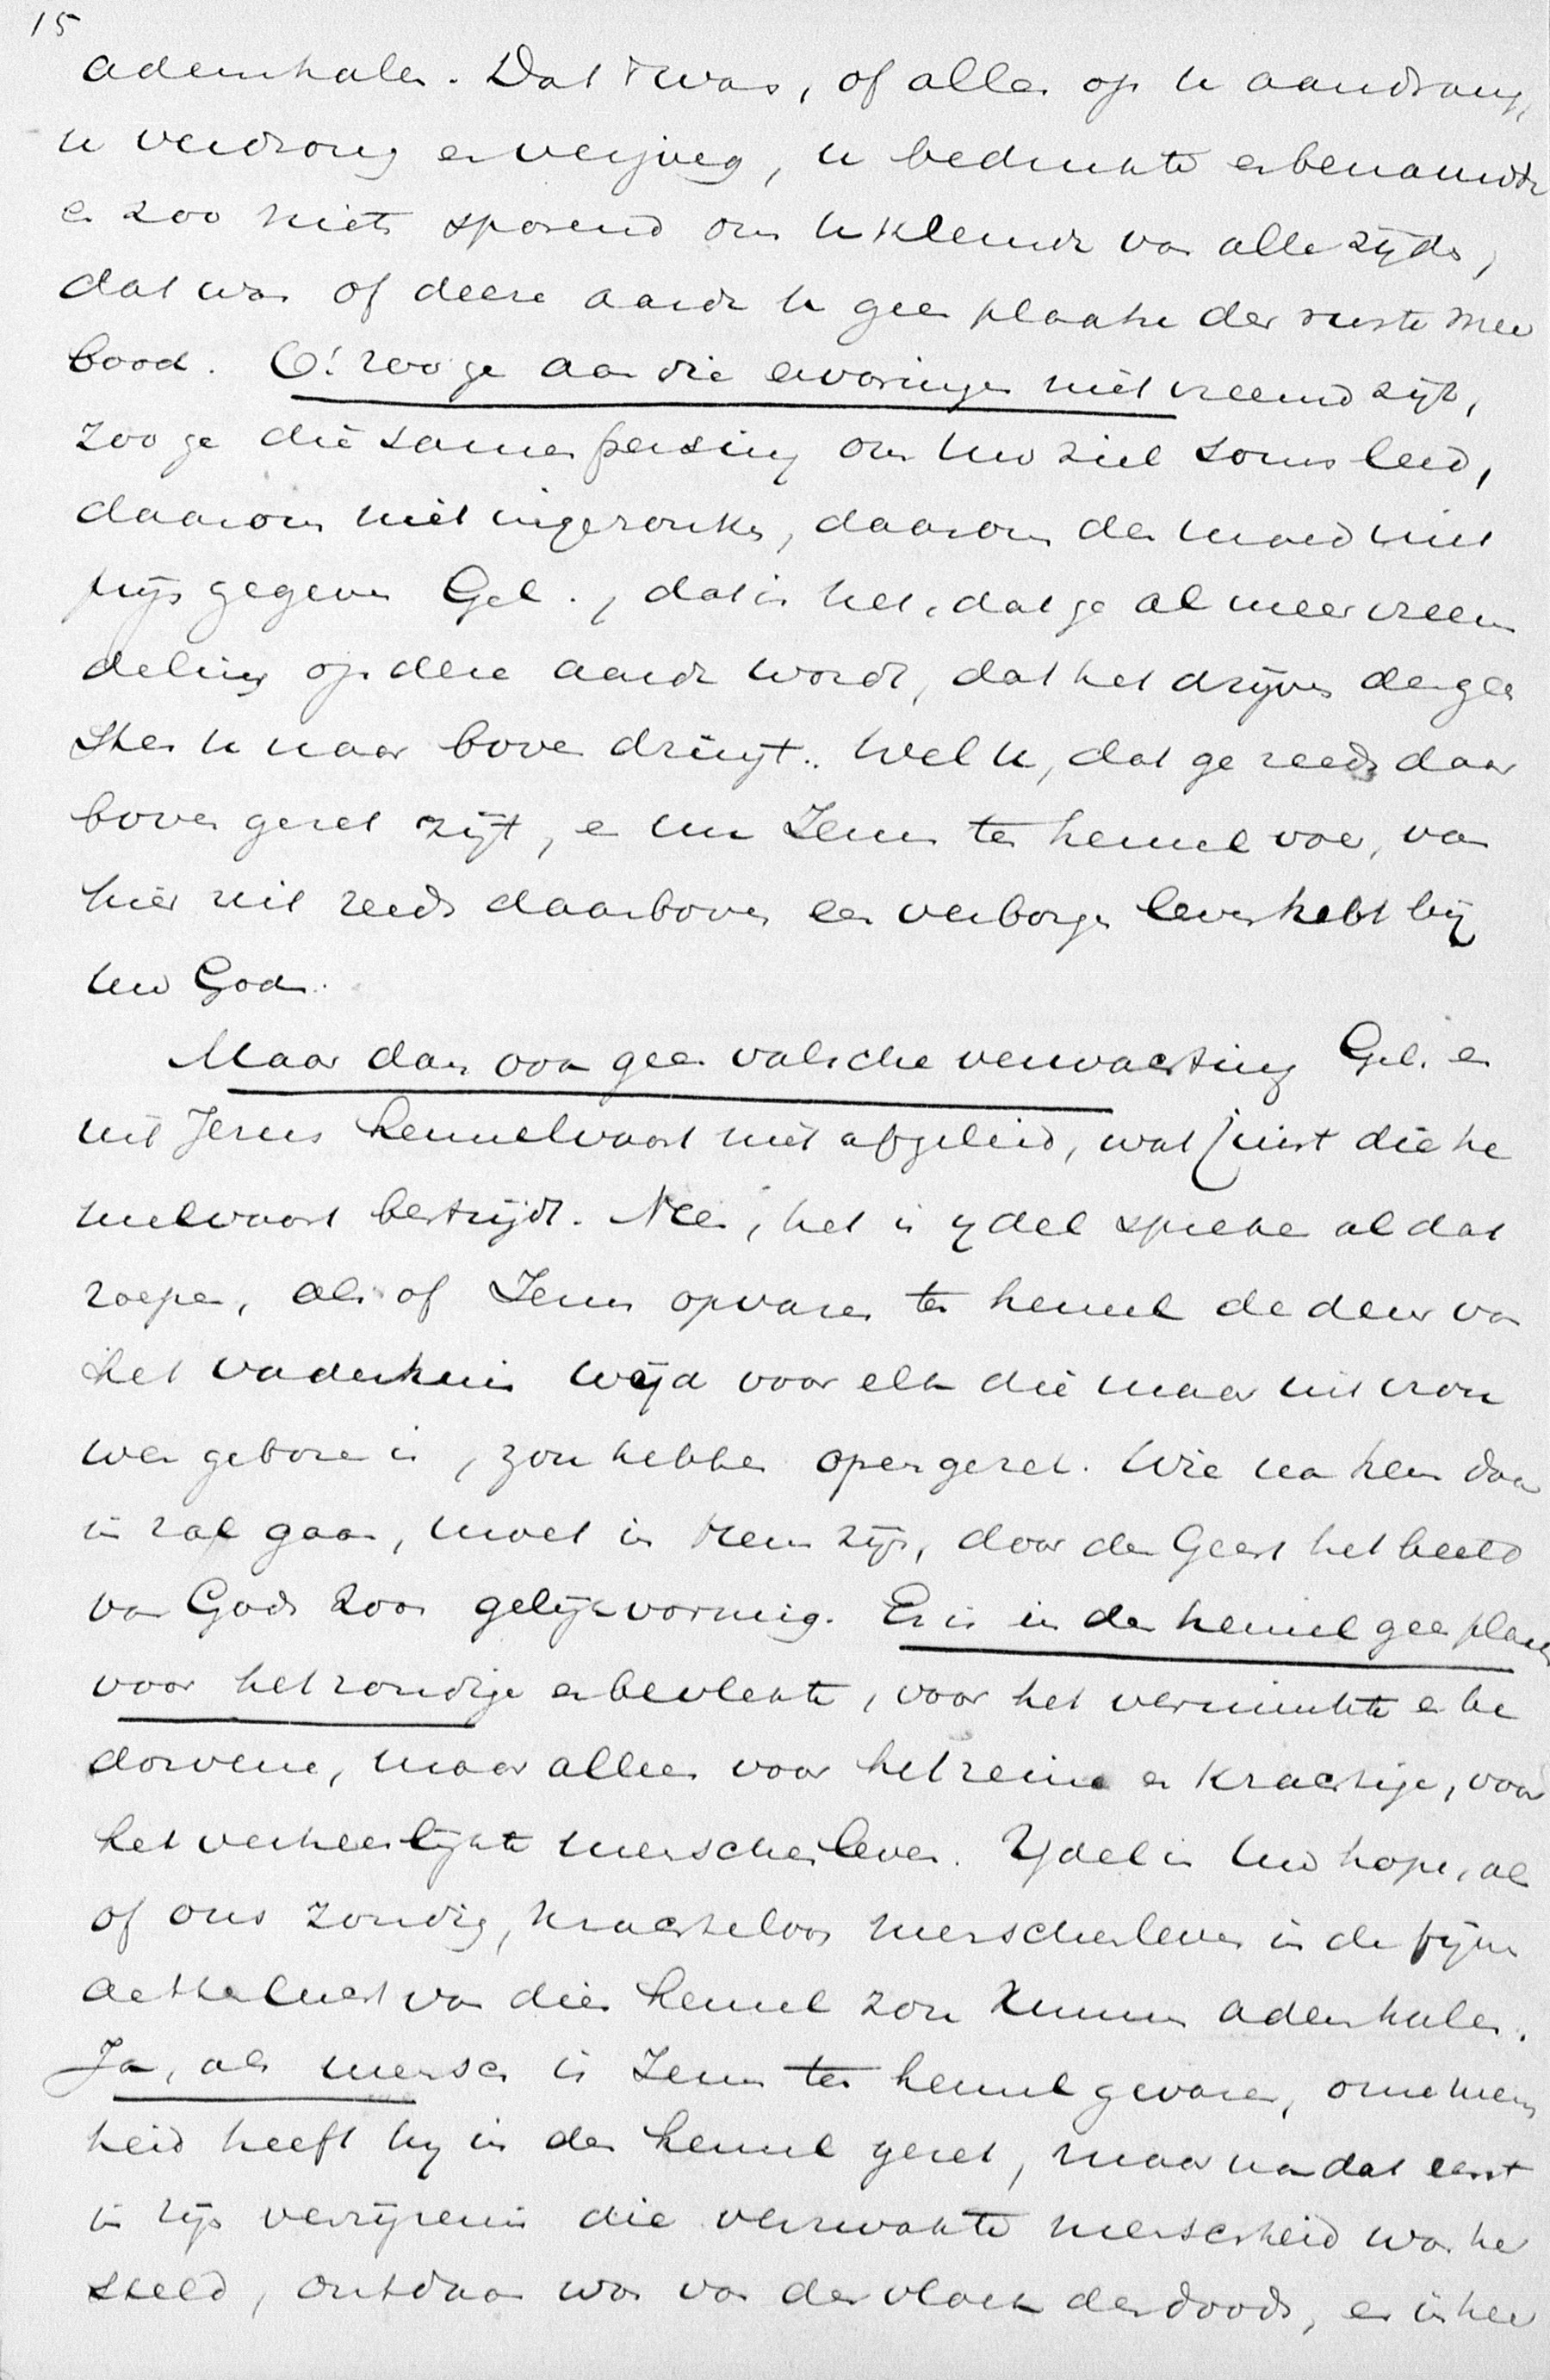 15
ademhalen. Dat 't was, of alles op u aandrong,
u verdrong en verjoeg, u bedrukte en benauwde
en zoo niets sparend om u klemde van alle zijde,
dat was of deze aarde u geen plaatse der ruste meer
bood. O! zoo ge aan die ervaringen niet vreemd zijt,
zoo ge die samenpersing om uw ziel soms leed,
daarom niet ingezonken, daarom den moed niet
prijs gegeven Gel., dat is het, dat ge al meer vreem
deling op deze aarde wordt, dat het drijven der gee
sten u naar boven dringt. Wel u, dat ge reeds daar
boven gezet zijt, en nu Jezus ten hemel voer, van
hier uit reeds daarboven een verborgen leven hebt bij
uw God.
Maar dan ook geen valsche verwachting Gel. en
uit Jezus hemelvaart niet afgeleid, wat juist die he
melvaart bestrijdt. Neen, het is ijdel spreken al dat
roepen, als of Jezus opvaren ten hemel de deur van
het vaderhuis wijd voor elk die maar uit vrou
wen geboren is, zou hebben opengezet. Wie na hem daar
in zal gaan, moet in Hem zijn, door den Geest het beeld
van Gods Zoon gelijkvormig. Er is in den hemel geen plaats
voor het zondige en bevlekte, voor het verminkte en be
dorvene, maar alleen voor het reine en krachtige, voor
het verheerlijkte menschenleven. Ydel is uw hope, als
of ons zondig, krachteloos menschenleven in de fijne
aetherlucht van dien hemel zou kunnen ademhalen.
Ja, als mensch is Jezus ten hemel gevaren, onze mensch
heid heeft hij in den hemel gezet, maar nadat eerst
in zijn verrijzenis die verzwakte menschheid was her
steld, ontdaan was van den vloek des doods, en in heer